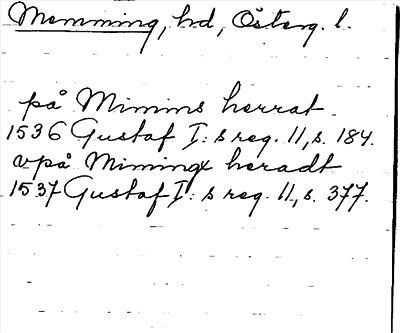 Memming, hd, Österg. l.
på Mimins herrat
1536 Gustaf I:s reg. 11, s. 184.
vpå Mimingx heradt
1537 Gustaf I:s reg. 11, s. 377.